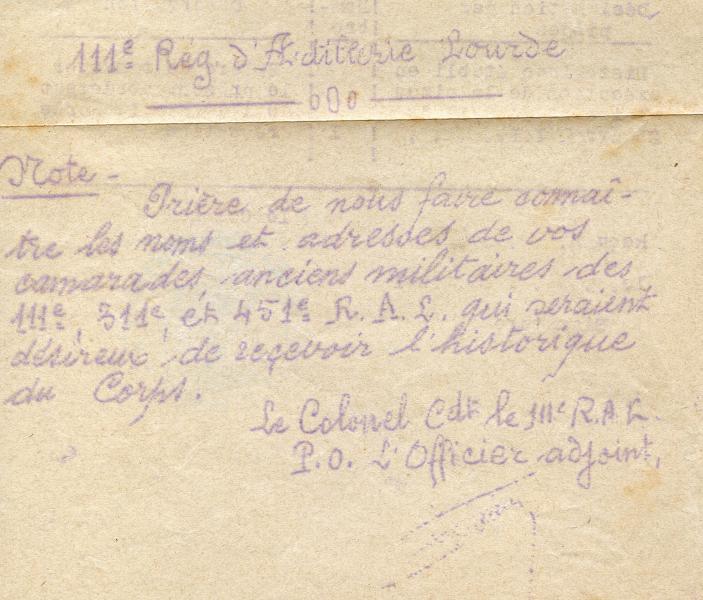 111e Rég. d'Artillerie Lourde
o0o
Note -
Prière de nous faire connaî-
tre les noms et adresses de vos
camarades, anciens militaires des
111e, 311e, et 451e R. A. L. qui seraient
désireux de reçevoir l'historique
du Corps.
Le Colonel Cdt le 111e R.A.L.
P.O. L'Officier adjoint,